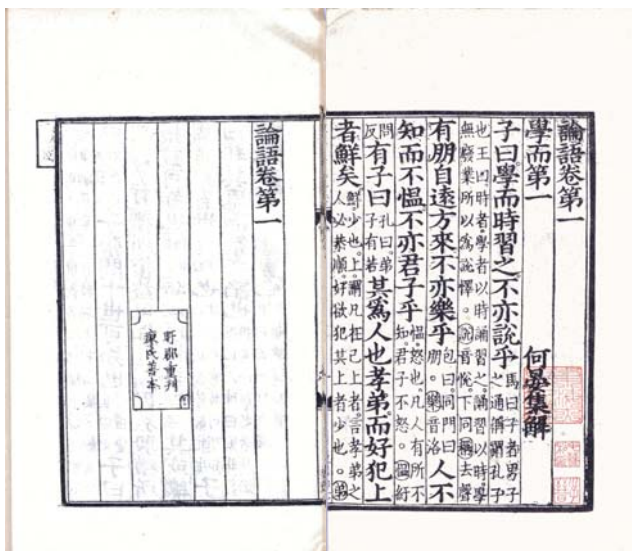 論語卷第一
學而第一 何晏集解
子曰。學而時習之不亦說乎 馬曰子者男子之通稱謂孔子
也王曰時者。學者以時誦習之。誦習以時學無廢業所以為說懌。說音悅。下同稱去聲
有朋自遠方來不亦樂乎 包曰。同門曰朋。樂音洛 人不
知而不慍不亦君子乎 慍。怒也凡人有所不知。君子不怒。慍紆
問反 有子曰 孔曰弟子有若 其爲人也孝弟而好犯上
者鮮矣 鮮。少也。上。謂凡在己上者。言孝弟之人必恭順。好欲犯其上者少也。弟
論語卷第一
盱郡重刊
廖氏善本